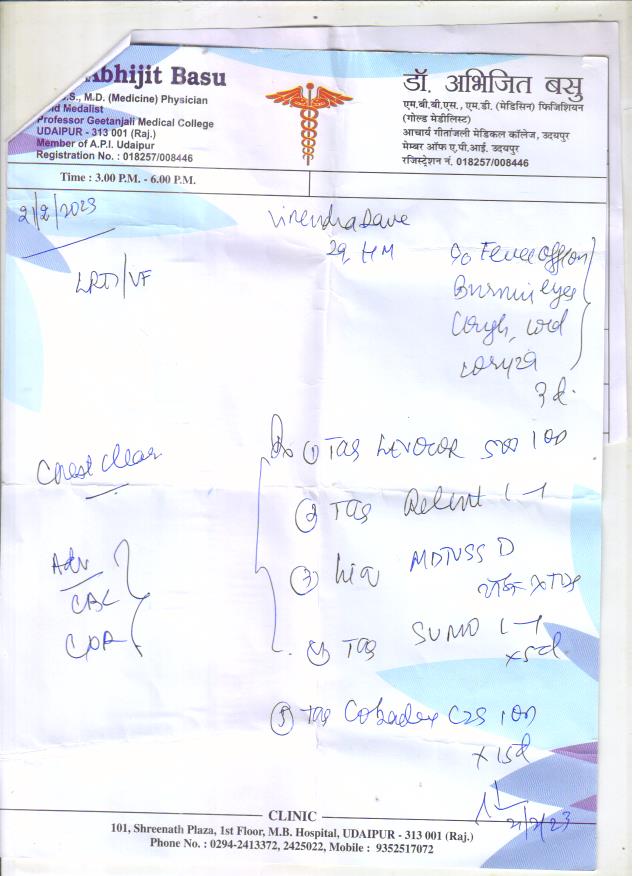 Abhijit Basu
S., M.D. (Medicine) Physician
Medalist
Professor Geetanjali Medical College
UDAIPUR - 313 001 (Raj.)
Member of A.P.I. Udaipur
Registration No. : 018257/008446
Time : 3.00 P.M. - 6.00 P.M.
डॉ. अभिजित बसु
एम.बी.बी.एस., एम.डी. (मेडिसिन) फिजिशियन
(गोल्ड मेडीलिस्ट)
आचार्य गीतांजली मेडिकल कॉलेज, उदयपुर
मेम्बर ऑफ ए.पी.आई. उदयपुर
रजिस्ट्रेशन नं. 018257/008446
2/2/2023
Virendra Dave
29 M
LRTI/VF
c/o Fever off/on
Burning eyes
Cough, cold
coryza
3 d.
Chest clear
Adv
CBC
Rx ① TAB LEVOCOR 500 1 OD
② TAB Relent 1-1
③ Liq MDTUSS D
x TDS
④ TAB SUMO 1-1
x 5d
⑤ TAB Cobadex CZS 1 OD
x 15d
CLINIC
101, Shreenath Plaza, 1st Floor, M.B. Hospital, UDAIPUR - 313 001 (Raj.)
Phone No. : 0294-2413372, 2425022, Mobile : 9352517072